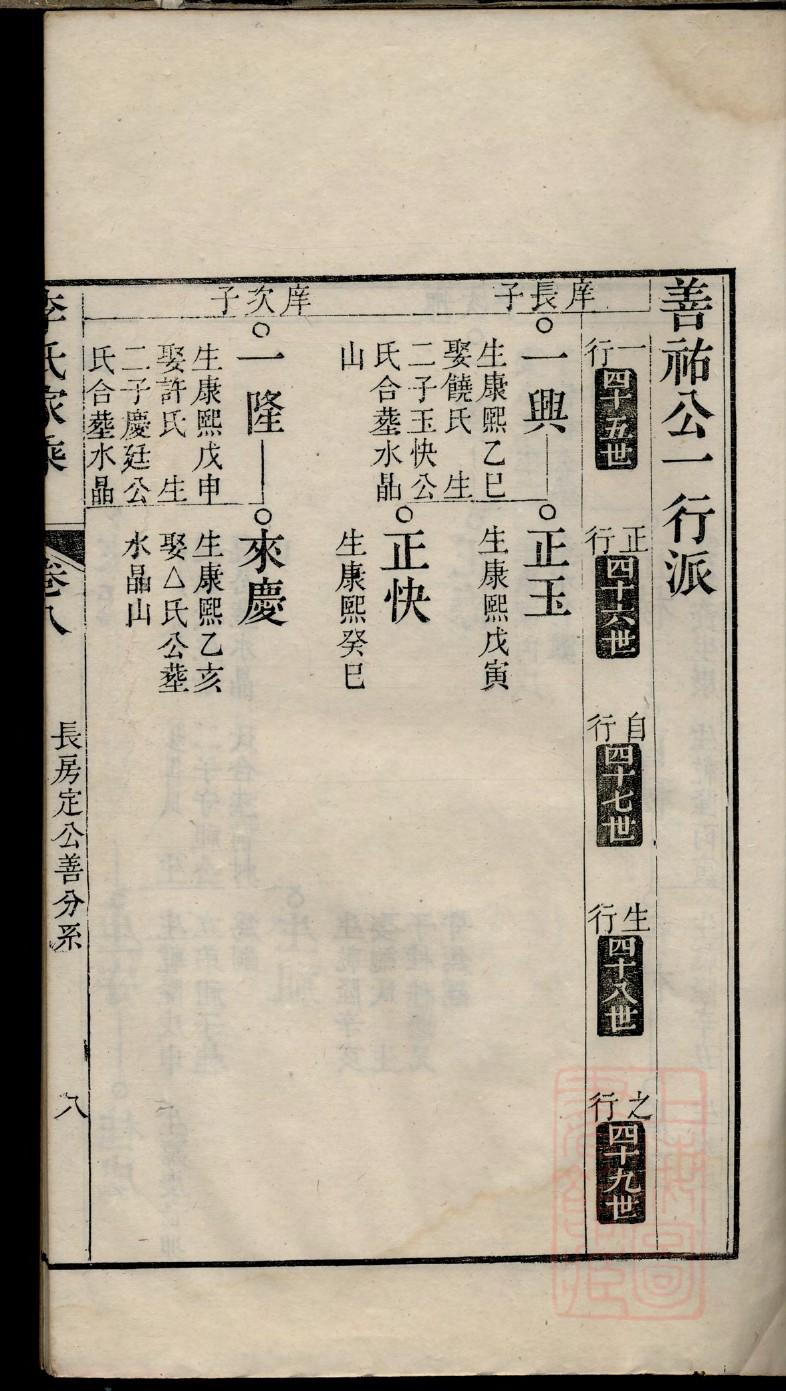 善祐公一行派
一行 四十五世
正行 四十六世
自行 四十七世
生行 四十八世
之行 四十九世
庠長子
一興
生康熙乙巳
娶饒氏 生
二子玉快公
氏合塟水晶
山
正玉
生康熙戊寅
正快
生康熙癸巳
庠次子
一隆
生康熙戊申
娶許氏 生
二子慶廷公
氏合塟水晶
來慶
生康熙乙亥
娶△氏公塟
水晶山
李氏家乘
卷八
長房定公善分系
八